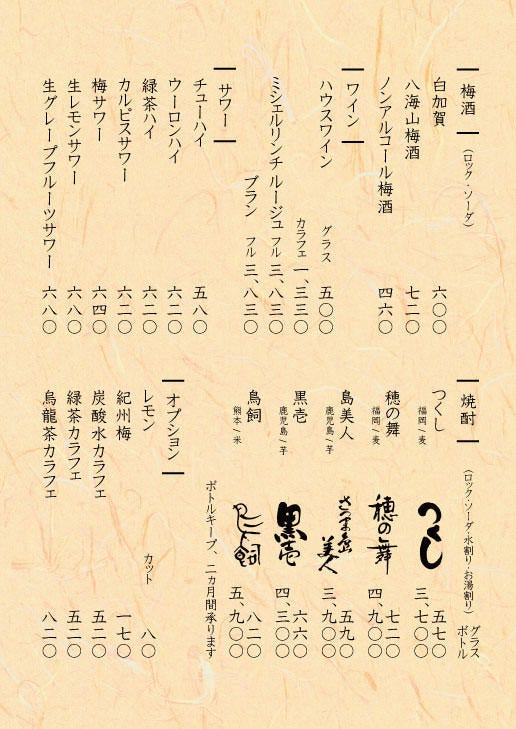 梅酒
(ロック・ソーダ)
白加賀 六〇〇
八海山梅酒 七二〇
ノンアルコール梅酒 四六〇
ワイン
ハウスワイン グラス 五〇〇
カラフェ 一、三三〇
ミシェルリンチ ルージュ フル 三、八三〇
ブラン フル 三、八三〇
サワー
チューハイ 五八〇
ウーロンハイ 六二〇
緑茶ハイ 六二〇
カルピスサワー 六二〇
梅サワー 六四〇
生レモンサワー 六八〇
生グレープフルーツサワー 六八〇
焼酎
(ロック・ソーダ水割り・お湯割り)
グラス
ボトル
つくし 福岡/麦 つくし 五七〇
三、七〇〇
穂の舞 福岡/麦 穂の舞 七二〇
四、九〇〇
島美人 鹿児島/芋 さつま島美人 五九〇
三、九〇〇
黒壱 鹿児島/芋 黒壱 六六〇
四、三〇〇
鳥飼 熊本/米 鳥飼 八二〇
五、九〇〇
ボトルキープ、二ヵ月間承ります
オプション
レモン カット 八〇
紀州梅 一七〇
炭酸水カラフェ 五二〇
緑茶カラフェ 五二〇
烏龍茶カラフェ 八二〇